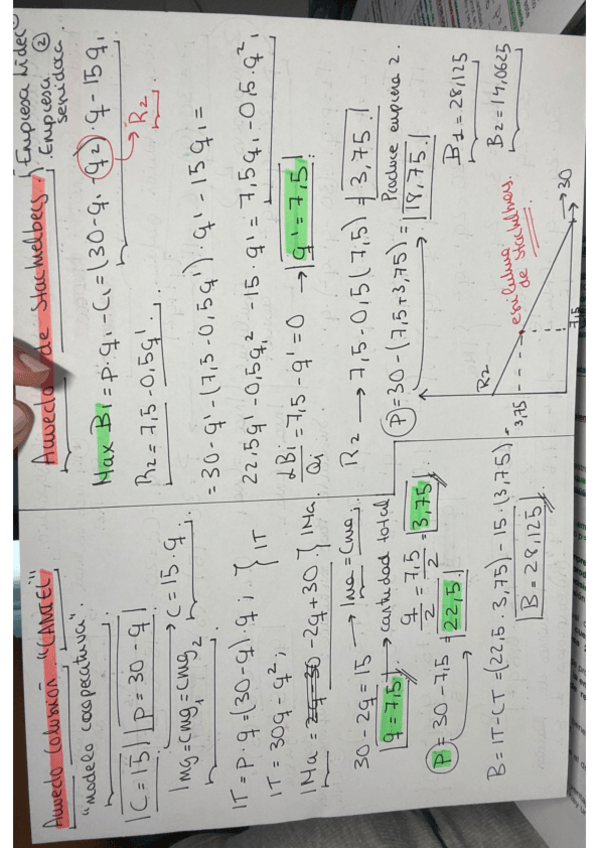 Acuerdo Colusión "CARTEL"
"modelo cooperativa".
C = 15 | p = 30 - q
Img = Cmg₁ = Cmg₂ C = 15·q
IT = P·q = (30-q)·q ; } IT
IT = 30q - q² ;
IMa = -2q + 30 } IMa.
30 - 2q = 15 → IMa = Cma
q = 7,5 → cantidad total
q/2 = 7,5/2 = 3,75
P = 30 - 7,5 = 22,5
B = IT - CT = (22,5 · 3,75) - 15 · (3,75) =
B = 28,125
Acuerdo de Stackelberg. { Empresa Líder ①
Empresa ② seguidora.
Max B1 = p·q₁ - C₁ = (30 - q₁ - q₂) q - 15q₁
R₂
R₂ = 7,5 - 0,5q¹
= 30 - q¹ - (7,5 - 0,5q¹) · q¹ - 15q₁ =
22,5q¹ - 0,5q₁² - 15·q¹ = 7,5q₁ - 0,5·q²
dB1/Q₁ = 7,5 - q¹ = 0 → q¹ = 7,5
R₂ → 7,5 - 0,5(7,5) = 3,75.
Produce empresa 2.
P = 30 - (7,5 + 3,75) = 18,75.
B1 = 28,125
B2 = 14,0625
R₂
3,75
7,5
30
de Stackelberg.